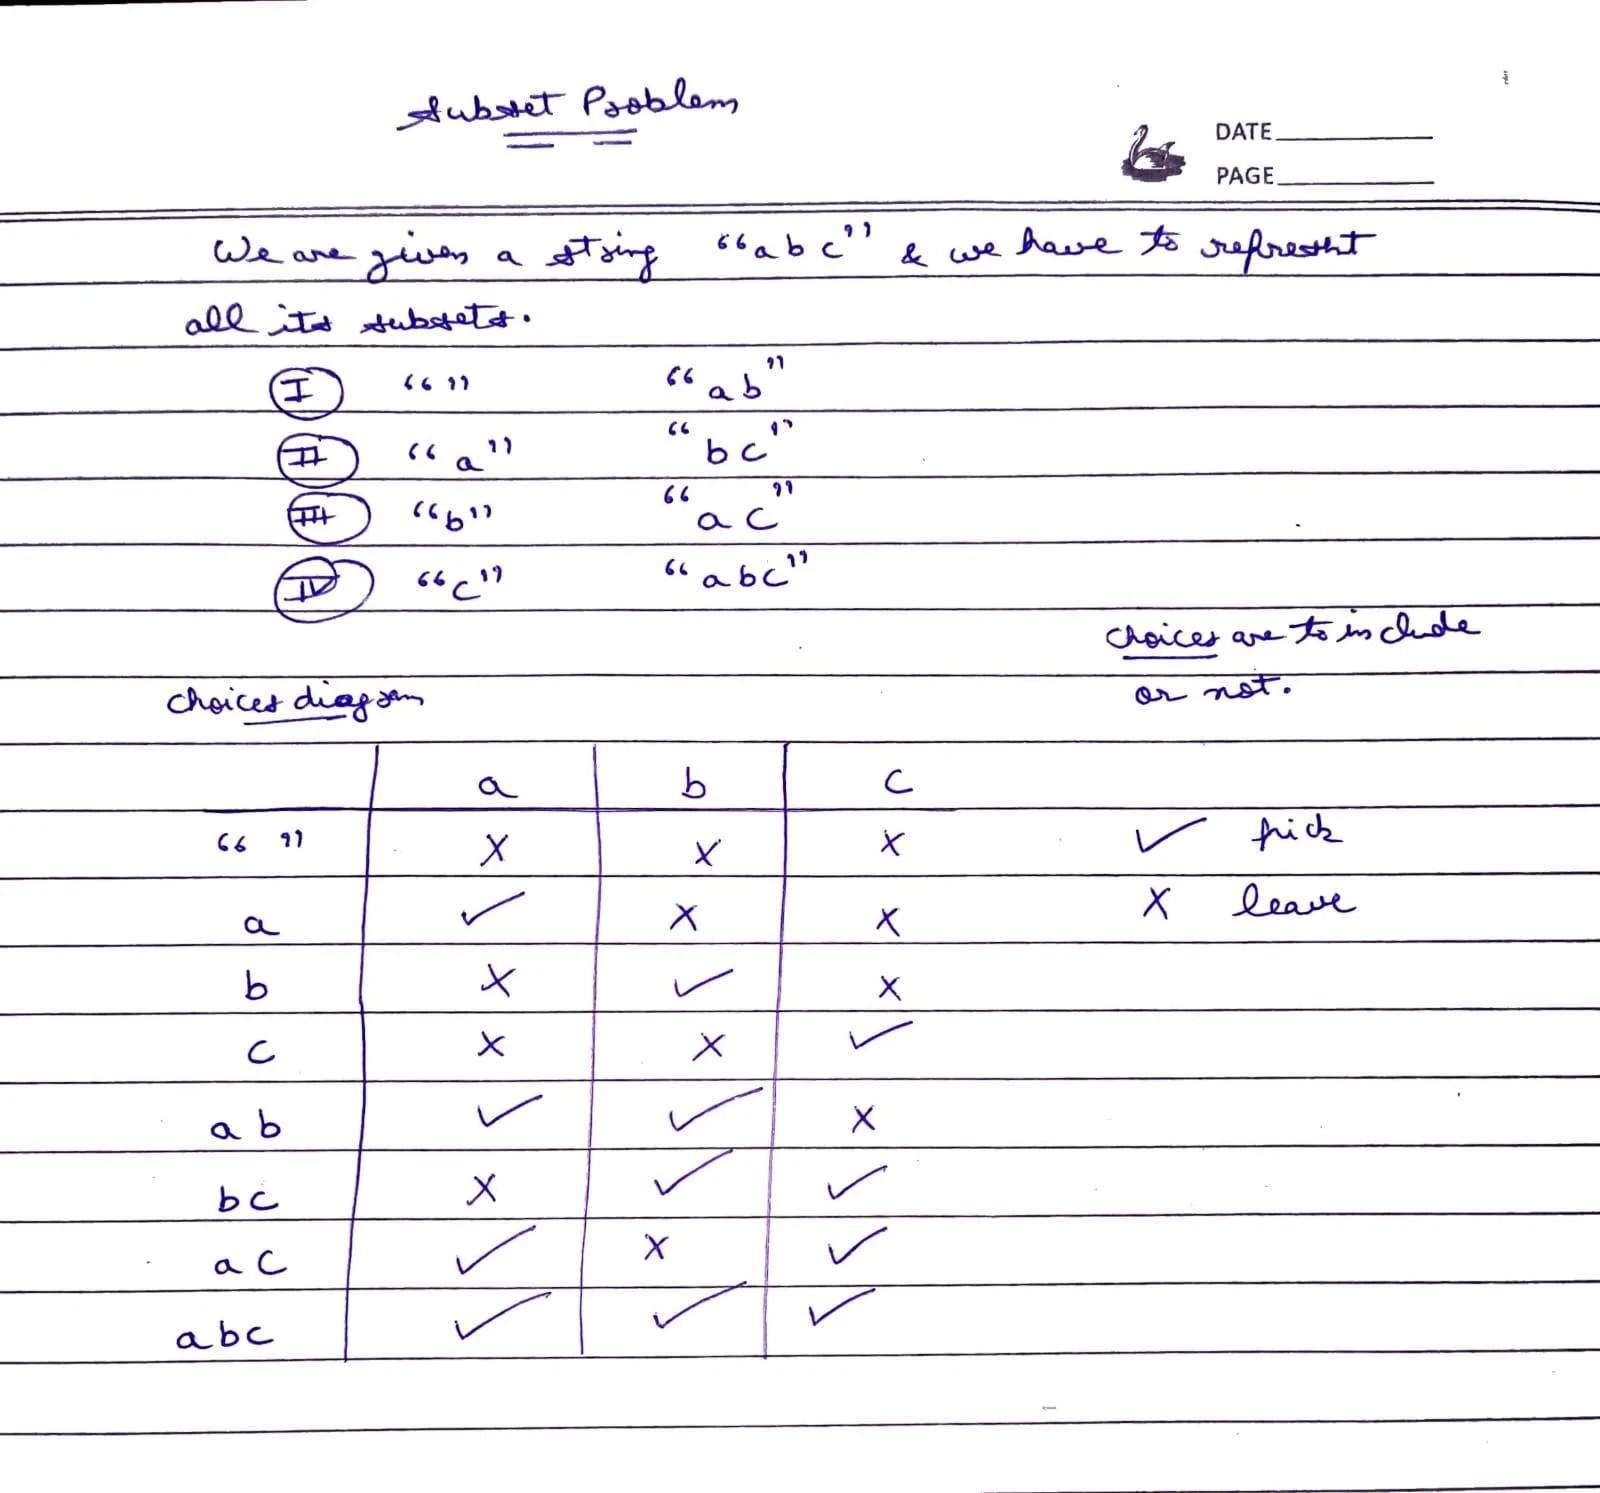 Subset Problem
DATE
PAGE
We are given a string "abc" & we have to represent
all its subsets.
I " " "ab"
II "a" "bc"
III "b" "ac"
IV "c" "abc"
choices are to include
or not.
choices diagram
a b c
" " X X X ✓ pick
a ✓ X X X leave
b X ✓ X
c X X ✓
ab ✓ ✓ X
bc X ✓ ✓
ac ✓ X ✓
abc ✓ ✓ ✓